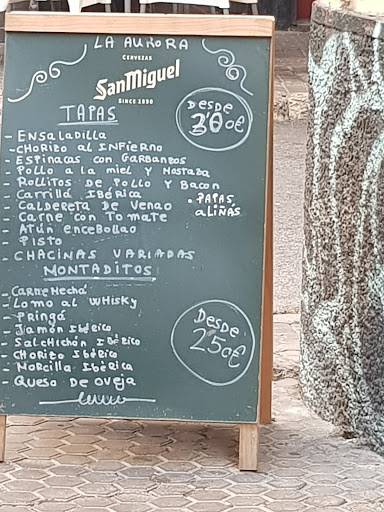 LA AURORA
CERVEZAS
SanMiguel
SINCE 1890
TAPAS
DESDE
3'00€
- ENSALADILLA
- CHORIZO AL INFIERNO
- ESPINACAS CON GARBANZOS
- POLLO A LA MIEL Y MOSTAZA
- ROLLITOS DE POLLO Y BACON
- CARRILLÁ IBÉRICA
- CALDERETA DE VENAO
• PAPAS ALIÑÁS
- CARNE CON TOMATE
- ATÚN ENCEBOLLAO
- PISTO
- CHACINAS VARIADAS
MONTADITOS
- CARNE MECHÁ
- LOMO AL WHISKY
- PRINGÁ
- JAMÓN IBÉRICO
- SALCHICHÓN IBÉRICO
- CHORIZO IBÉRICO
- MORCILLA IBÉRICA
- QUESO DE OVEJA
DESDE
2'50€